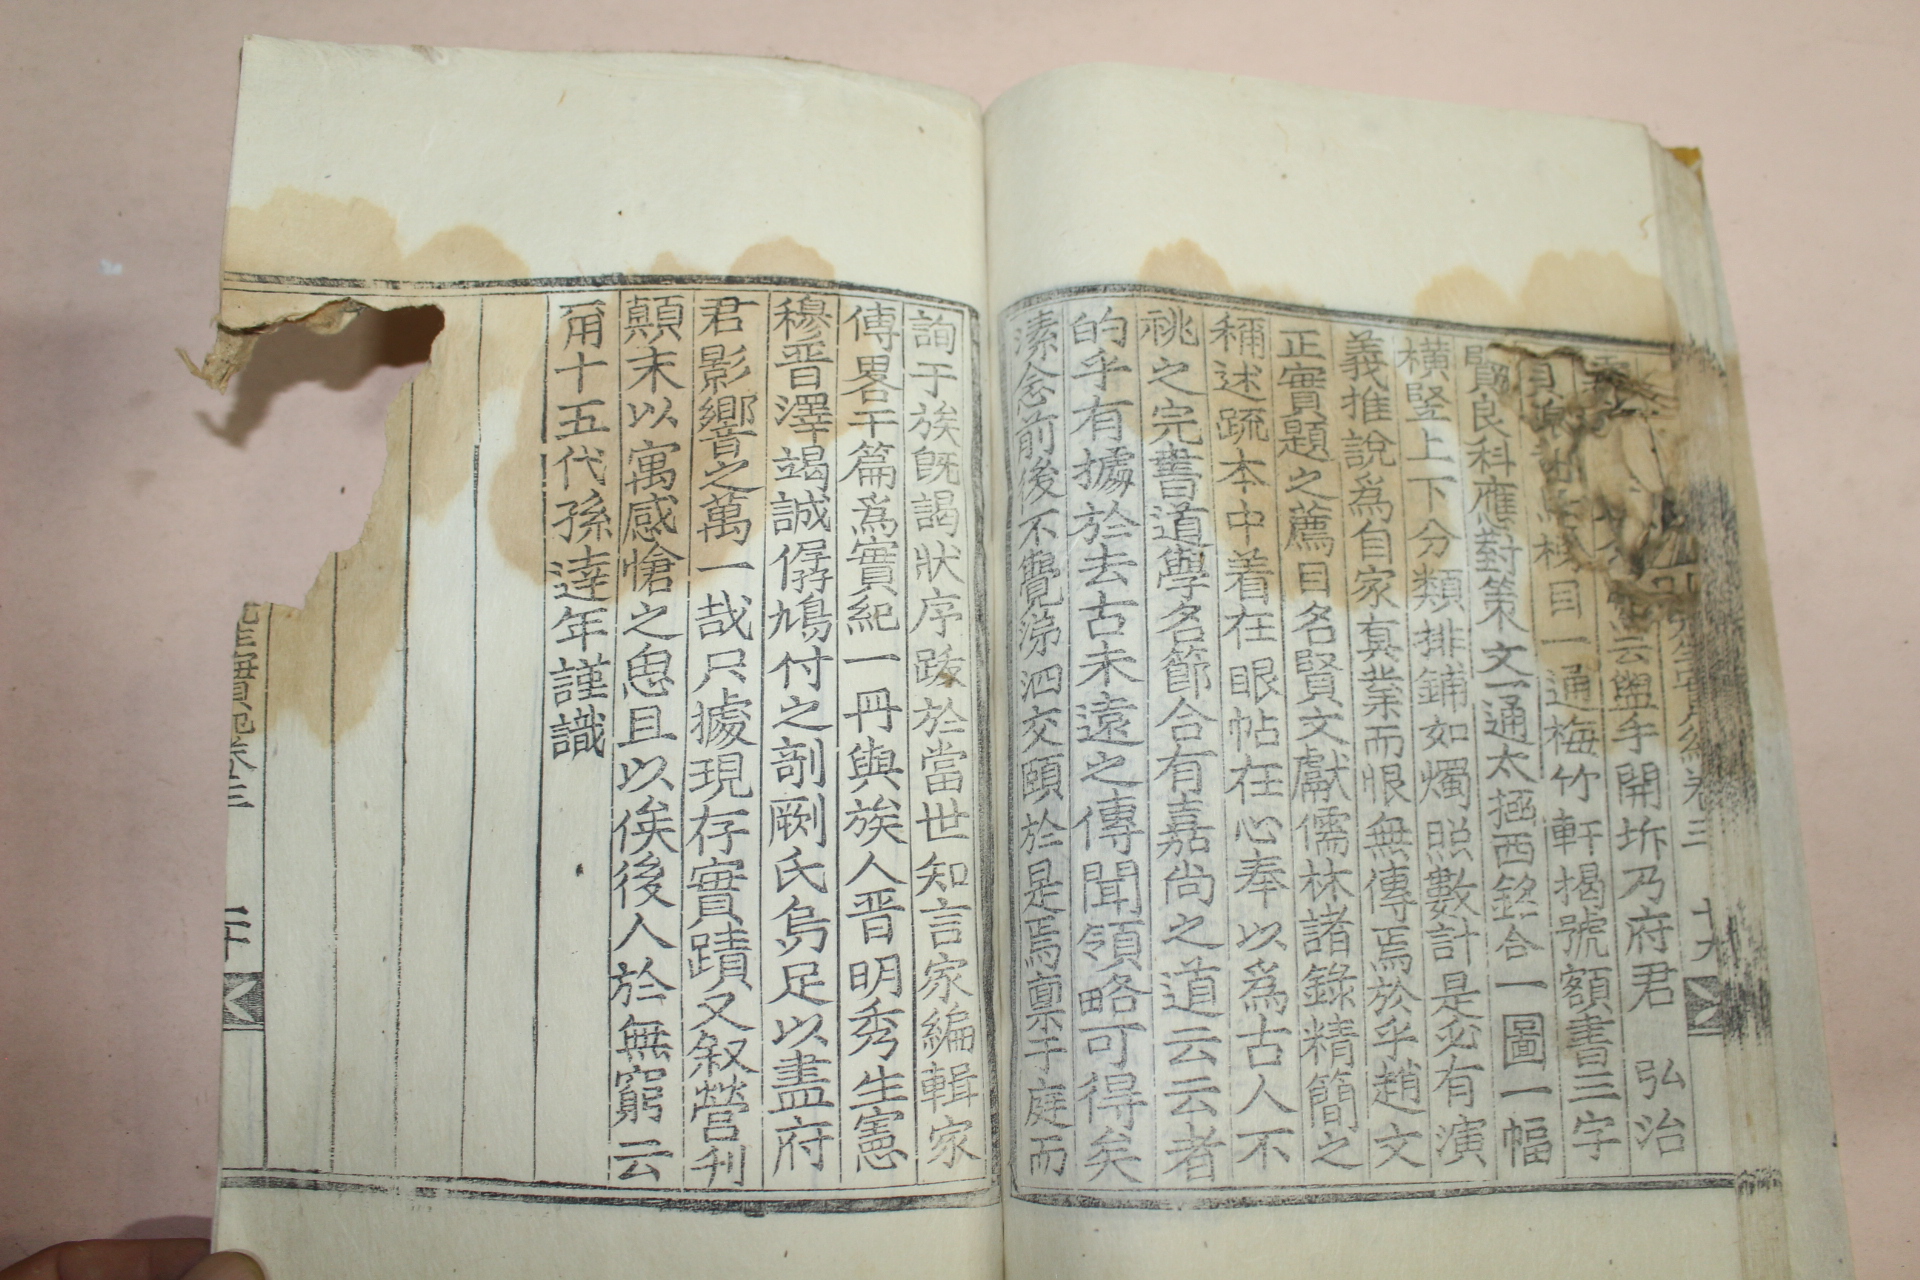 先生實紀卷三
十九
云盥手開坼乃府君 弘治
目一通梅竹軒揭號額書三字
賢良科應對策文一通太極西銘合一圖一幅
橫竪上下分類排鋪如燭照數計是必有演
義推說爲自家眞業而恨無傳焉於乎趙文
正實題之薦目名賢文獻儒林諸錄精簡之
稱述疏本中着在眼帖在心奉以爲古人不
祧之完書道學名節合有嘉尙之道云云者
的乎有據於去古未遠之傳聞領略可得矣
潫念前後不覺涕泗交頤於是焉稟于庭而
詢于族旣謁狀序跋於當世知言家編輯家
傳畧干篇爲實紀一冊與族人晋明秀生憲
穆晋澤竭誠僝鳩付之剞劂氏烏足以盡府
君影響之萬一哉只據現存實蹟又叙營刊
顚末以寓感愴之思且以俟後人於無窮云
甭十五代孫達年謹識
先生實紀卷三
二十